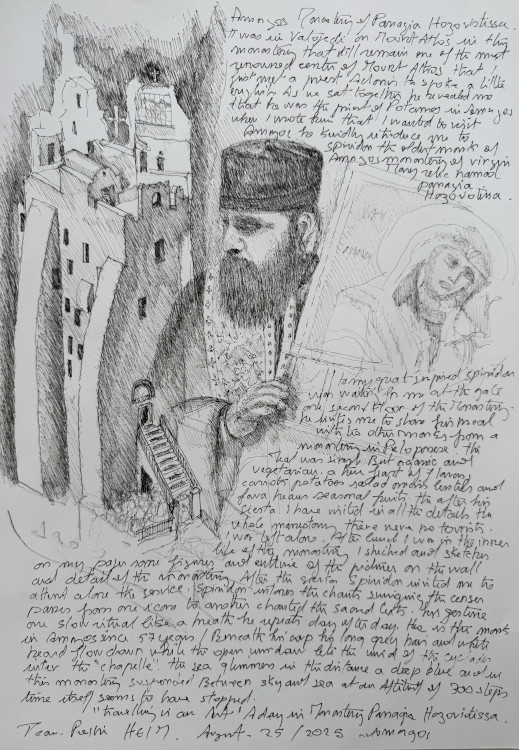 Amorgos Monastery of Panagia Hozoviotissa.
I was in Vatopedi on Mount Athos in this
monastery that still remain one of the most
renowned center of Mount Athos that I
just met a priest Adonis he spoke a little
english. As we sat together he revealed me
that he was the priest of Potamos in Amorgos
when I wrote him that I wanted to visit
Amorgos he kindly introduce me to
Spiridon the oldest monk of
Amorgos monastery of virgin
Mary relic named
panagia
Hozoviotissa.
To my great surprised Spiridon
was waiting for me at the gate
one second floor of the Monastery.
he invites me to share his meal
with the other monks from a
monastery in Peloponese. the
meal was simple But organic and
vegetarian. a thin part of
carrots potatoes salad onions lentils and
Fava beans seasonal fruits. the after his
siesta. I have visited in all the details the
whole there never no tourists.
I was left alone. After Lunch I was in the inner
life of the monastery I sketched and sketches
on my paper some figures and outline of the pictures on the wall
and detail of the monastery. After the siesta Spiridon invited me to
attend alone the service. Spiridon intones the chants swinging the censer
passes from one icone to another chanted the sacred texts. his gesture
one slow ritual like a breath he repeats day after day. he is the monk
in Amorgos since 57 years / Beneath his cap his long grey hair and white
beard flow down while the open window lets the wind of the cyclades
enter the "chapelle". the sea glimmers in the distance a deep blue and in
this monastery suspended Between sky and sea at an altitude of 300 steps
time itself seems to have stopped.
"travelling is an Art" / A day in Monastery Panagia Hozoviotissa.
August - 25 / 2025 Amorgos